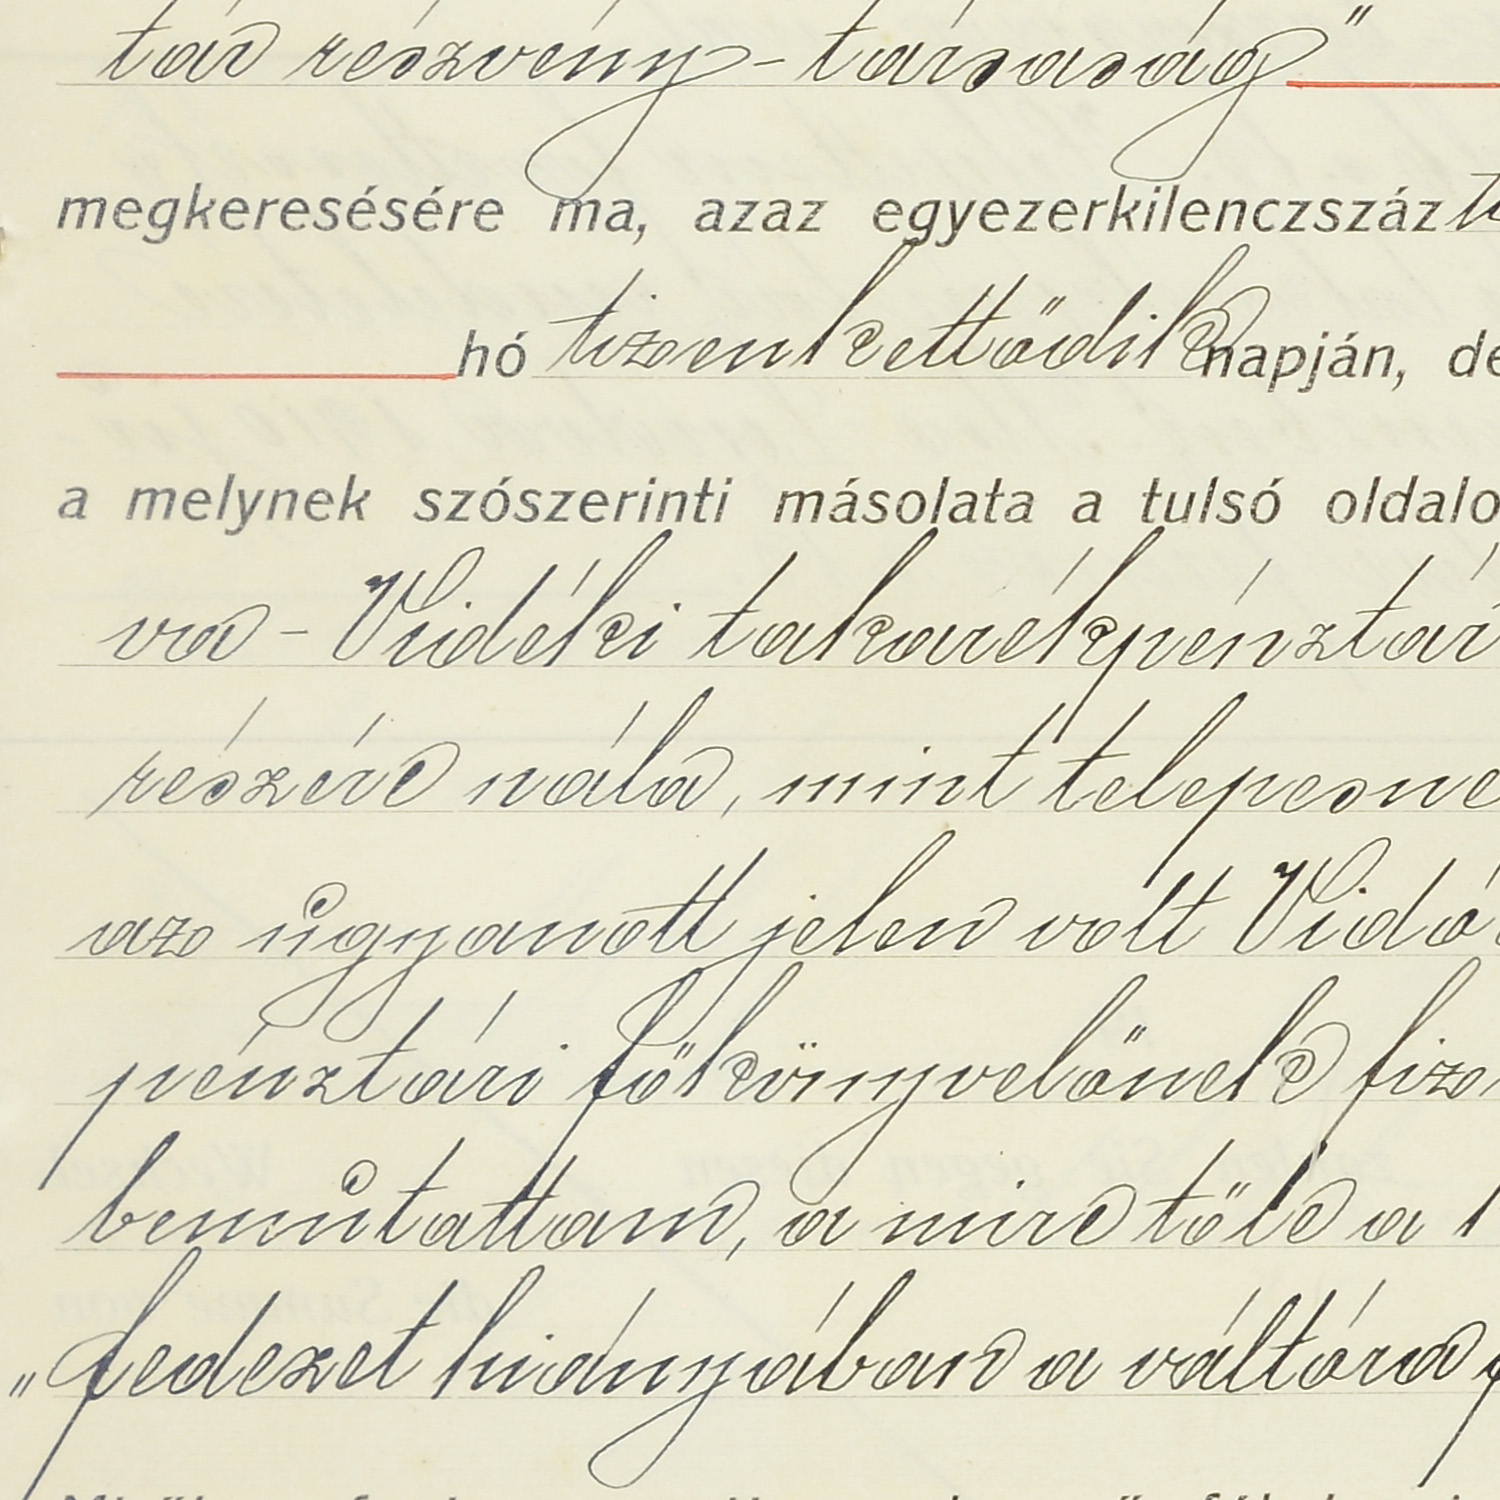 tár részvény-társaság"
megkeresésére ma, azaz egyezerkilenczszáz
hó tizenkettödik napján, de
a melynek szószerinti másolata a tulsó oldalo
va - Vidéki takarékpénztár
részére nála, mint telepesne
az ugyanott jelen volt Vidé
pénztári főkönyvelőnek fize
bemutattam, a mire től e a
"fedezet hiányában a váltóra